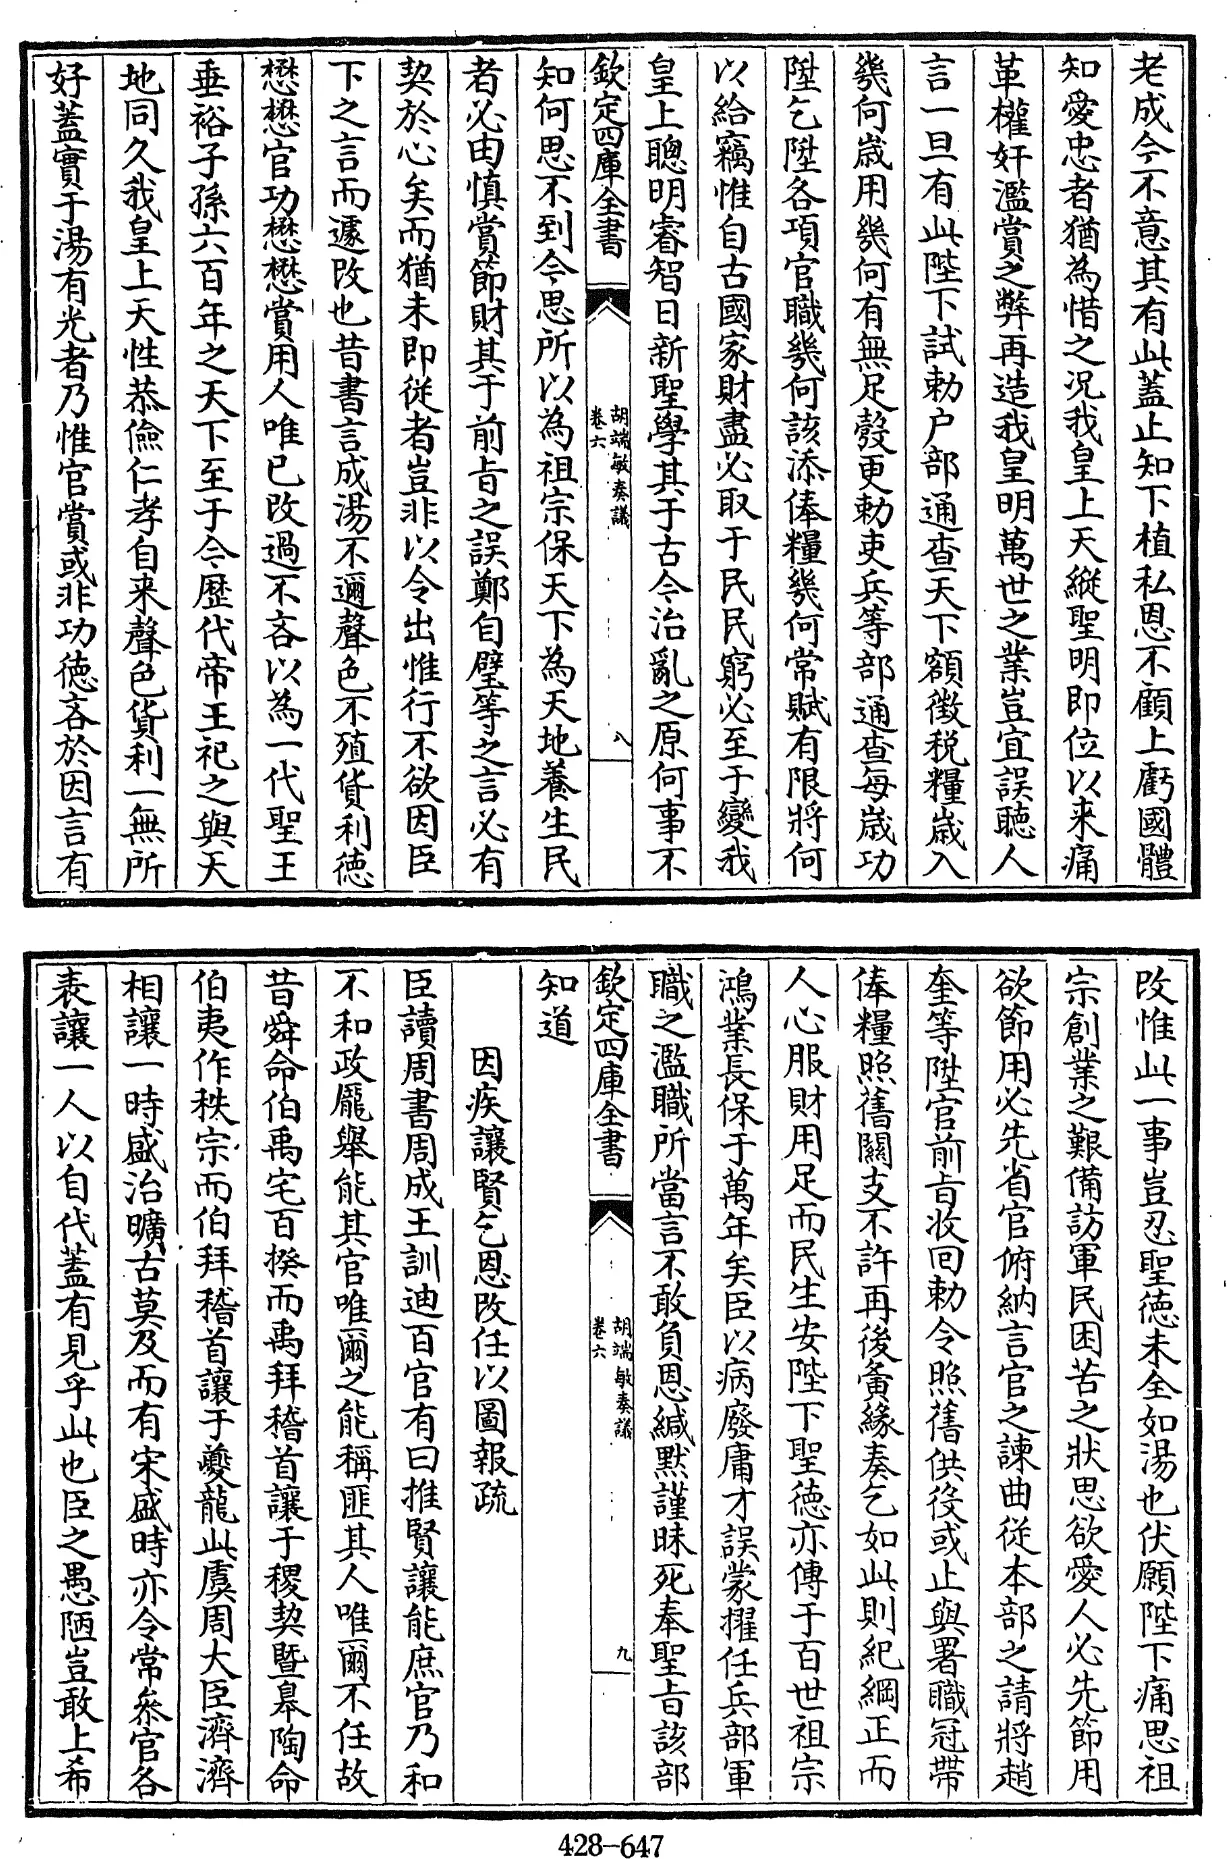 老成今不意其有此蓋止知下植私恩不顧上虧國體
知愛忠者猶為惜之况我皇上天縱聖明即位以来痛
革權奸濫賞之弊再造我皇明萬世之業豈宜誤聴人
言一旦有此陛下試勅户部通查天下額徴税糧歳入
幾何歳用幾何有無足彀更勅吏兵等部通查每歳功
陞乞陞各項官職幾何該添俸糧幾何常賦有限將何
以給竊惟自古國家財盡必取于民民窮必至于變我
皇上聰明睿智日新聖學其于古今治亂之原何事不
欽定四庫全書
胡端敏奏議
卷六
八
知何思不到今思所以為祖宗保天下為天地養生民
者必由慎賞節財其于前㫖之誤鄭自璧等之言必有
契於心矣而猶未即従者豈非以令出惟行不欲因臣
下之言而遽改也昔書言成湯不邇聲色不殖貨利徳
懋懋官功懋懋賞用人唯已改過不吝以為一代聖王
垂裕子孫六百年之天下至于今歴代帝王祀之與天
地同久我皇上天性恭儉仁孝自来聲色貨利一無所
好蓋實于湯有光者乃惟官賞或非功徳吝於因言有
改惟此一事豈忍聖徳未全如湯也伏願陛下痛思祖
宗創業之艱備訪軍民困苦之狀思欲愛人必先節用
欲節用必先省官俯納言官之諫曲従本部之請將趙
奎等陞官前㫖收回勅令照舊供役或止與署職冠帶
俸糧照舊關支不許再後夤縁奏乞如此則紀綱正而
人心服財用足而民生安陛下聖徳亦傳于百世祖宗
鴻業長保于萬年矣臣以病廢庸才誤蒙擢任兵部軍
職之濫職所當言不敢負恩緘黙謹昧死奉聖㫖該部
欽定四庫全書
胡端敏奏議
卷六
九
知道
因疾讓賢乞恩改任以圖報疏
臣讀周書周成王訓迪百官有曰推賢讓能庶官乃和
不和政厖舉能其官唯爾之能稱匪其人唯爾不任故
昔舜命伯禹宅百揆而禹拜稽首讓于稷契暨皋陶命
伯夷作秩宗而伯拜稽首讓于夔龍此虞周大臣濟濟
相讓一時盛治曠古莫及而有宋盛時亦令常叅官各
表讓一人以自代蓋有見乎此也臣之愚陋豈敢上希
428-647